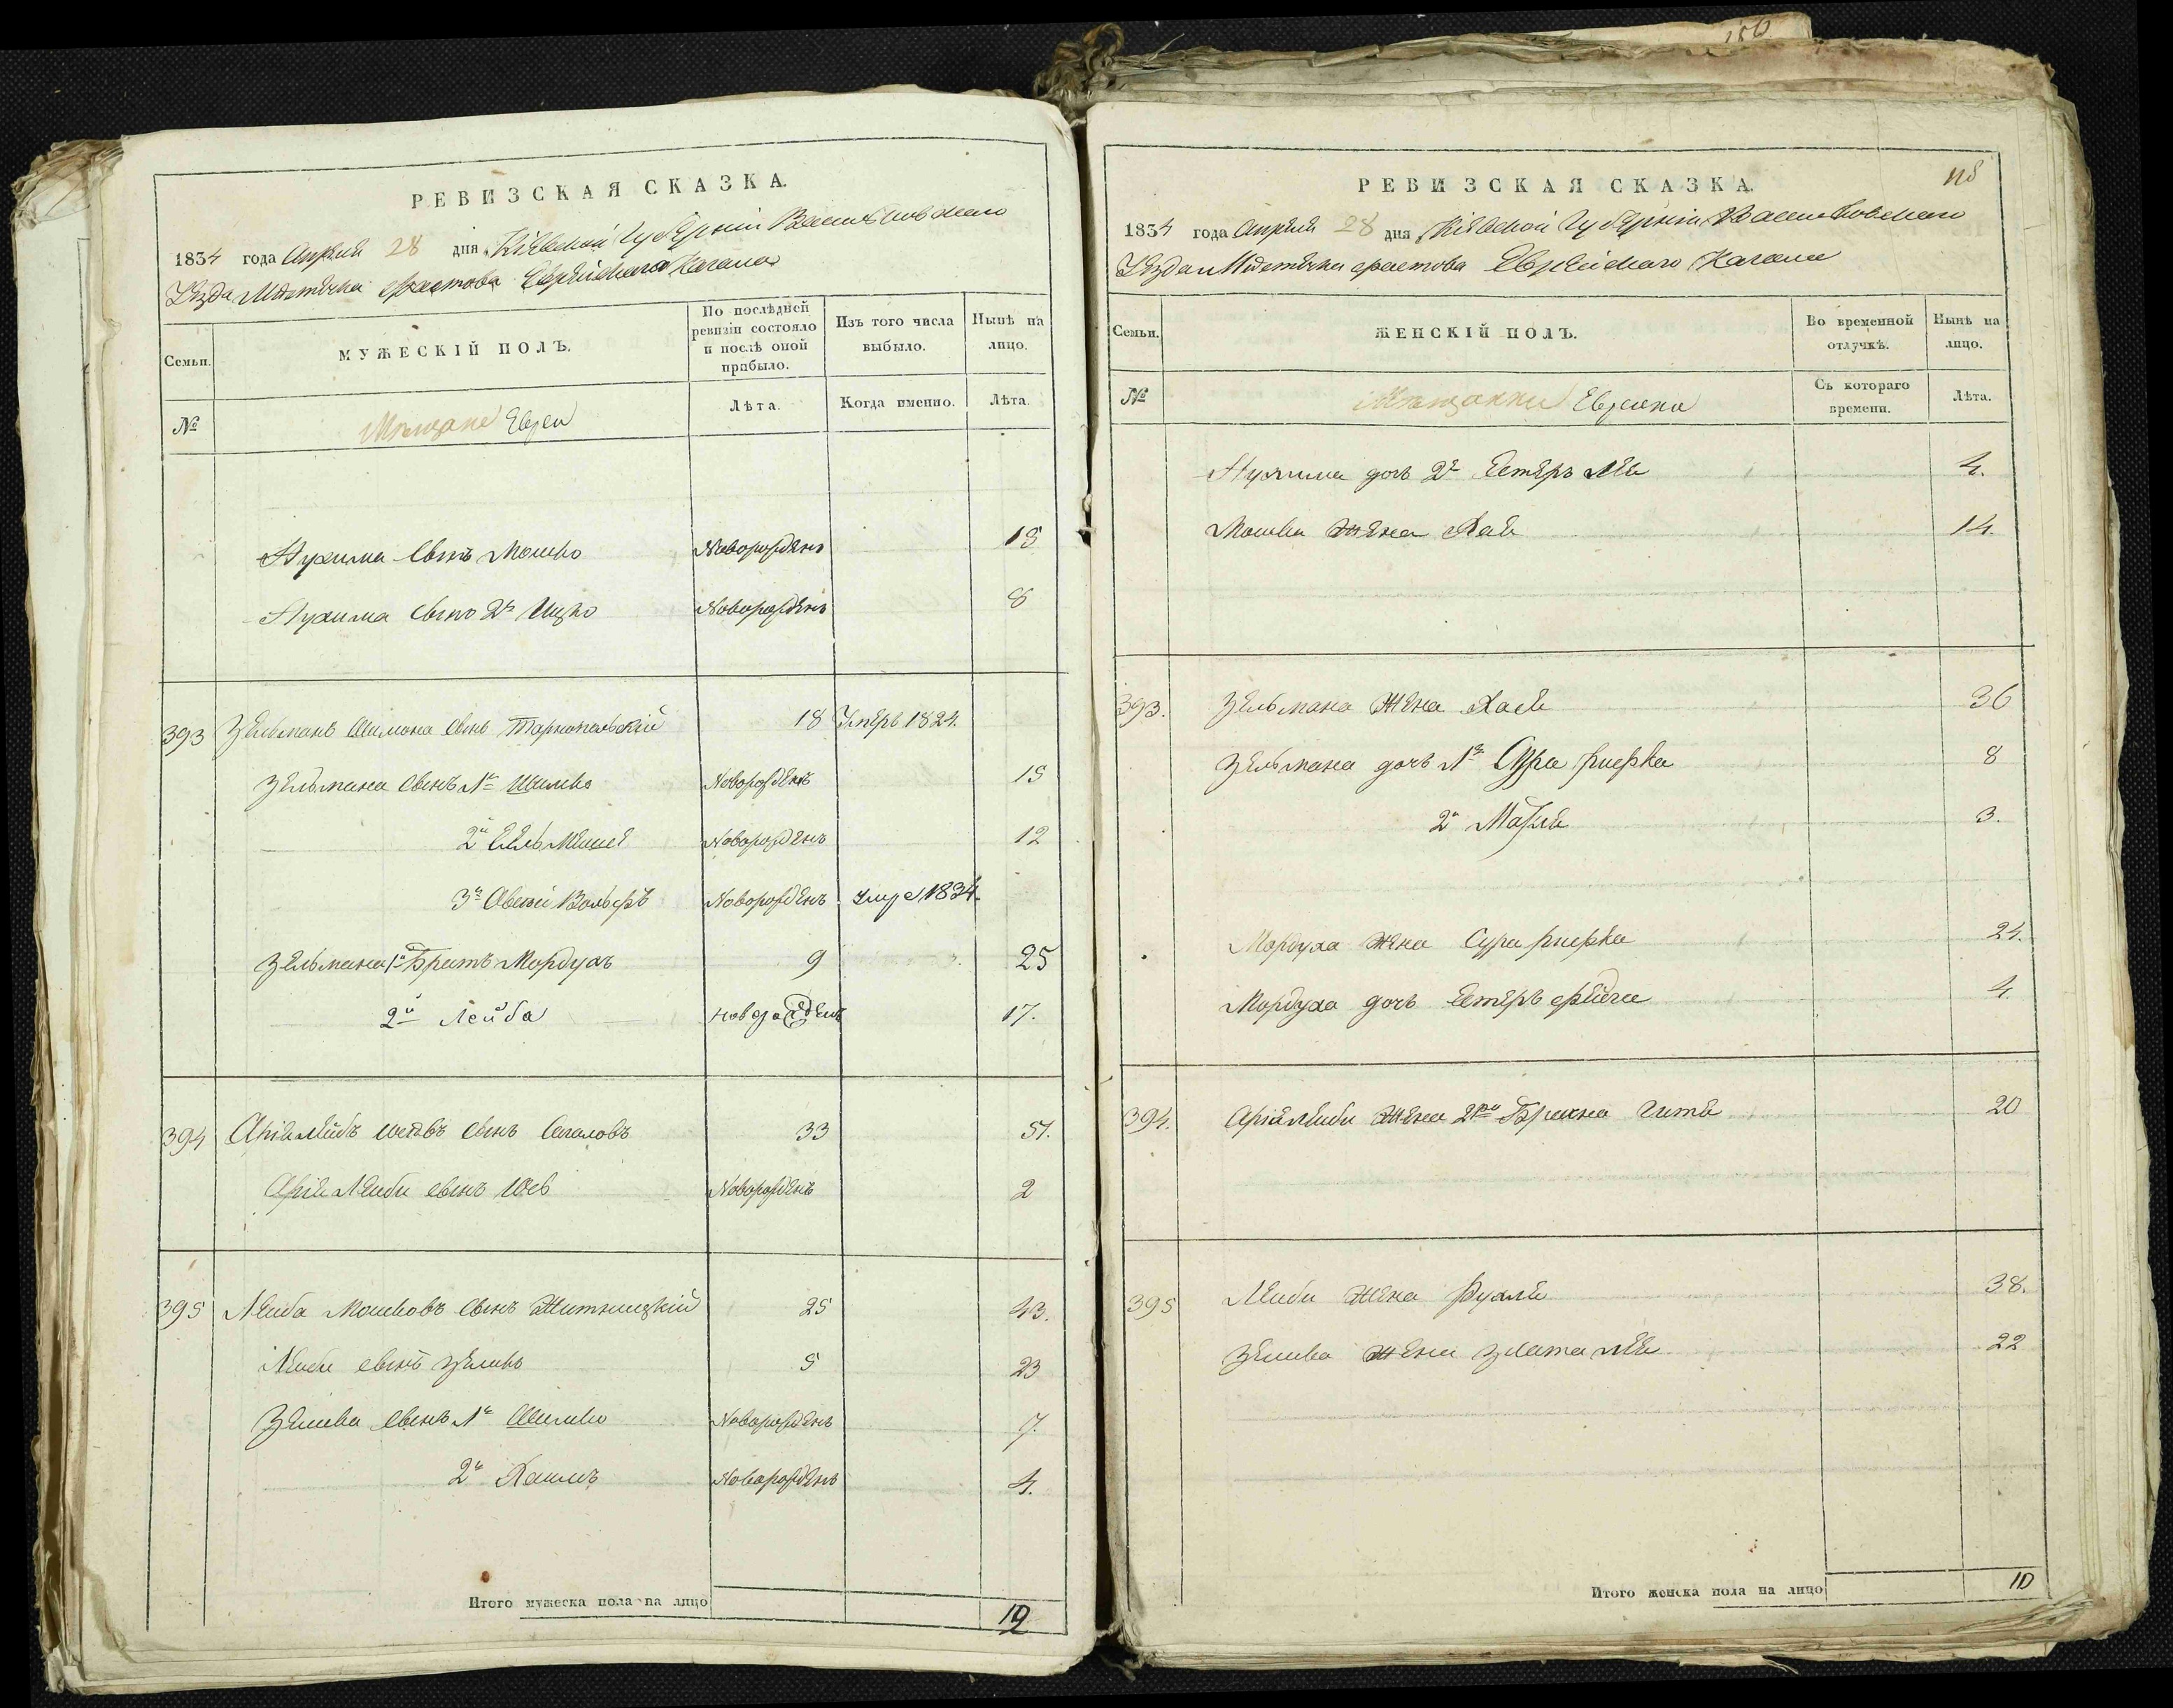 150
РЕВИЗСКАЯ СКАЗКА.
1834 года Апреля 28 дня Кіевской Губерніи Васильковскаго
Уезда Местечка Фастова Еврейскаго Кагала
Семьи.
МУЖЕСКІЙ ПОЛЪ.
По послѣдней ревизіи состояло и послѣ оной прибыло.
Изъ того числа выбыло.
Нынѣ на лицо.
№
Мещане Евреи
Лѣта.
Когда именно.
Лѣта.
Нухима Сынъ Мошко Новорожденъ 15
Нухима Сынъ 2й Ицко Новорожденъ 8
393 Зельманъ Шимона Сынъ Тарнопольскій 18 Умеръ 1824.
Зельмана Сынъ 1й Шимко Новорожденъ 15
2й Новорожденъ 12
3й Овсей Вольфъ Новорожденъ Умре 1834.
Зельмана 1й Братъ Мордухъ 9 25
2й Лейба новорожденъ 17.
394 Аріе Лейбъ Іосевъ Сынъ Сегаловъ 33 51.
Аріе Лейби сынъ Іось Новорожденъ 2
395 Лейба Мошковъ Сынъ Житницкій 25 43.
Лейби сынъ Зеливъ 5 23
Зелива Сынъ 1й Шимко Новорожденъ 7.
2й Хаимъ Новорожденъ 4.
Итого мужеска пола на лицо 12
118
РЕВИЗСКАЯ СКАЗКА.
1834 года Апреля 28 дня Кіевской Губерніи Васильковскаго
Уезда Местечка Фастова Еврейскаго Кагала
Семьи.
ЖЕНСКІЙ ПОЛЪ.
Во временной отлучкѣ.
Нынѣ на лицо.
№
Мещанки Еврейки
Съ котораго времени.
Лѣта.
Нухима дочь 2я Естеръ Лея 4.
Мошки Жена Хая 14.
393. Зельмана Жена Хася 36
Зельмана дочь 1я Сура Ривка 8
2я Маля 3.
Мордуха Жена Сура Ривка 24.
Мордуха дочь Естеръ Фейга 4.
394. Аріе Лейби Жена 2го Брака Гитя 20
395 Лейби Жена Рухля 38.
Зелива Жена Злата Лея 22
Итого женска пола на лицо 10